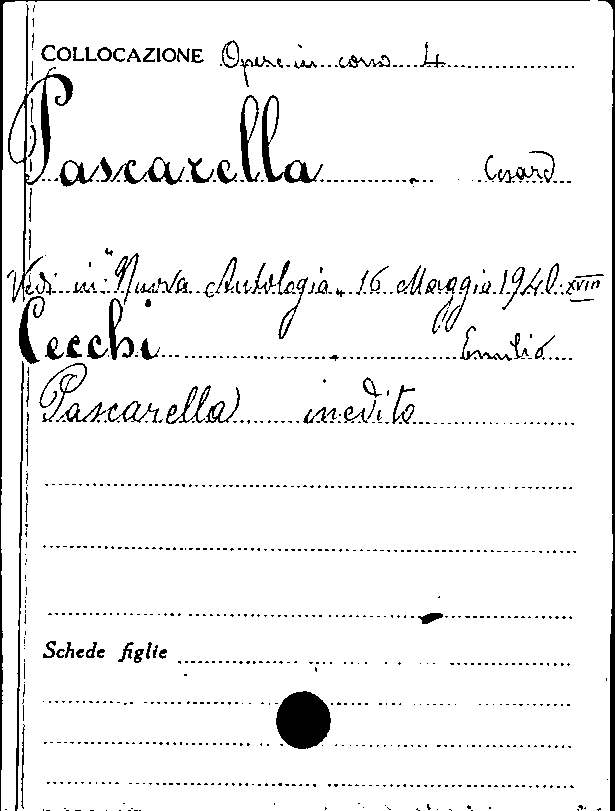 COLLOCAZIONE Opere in corso 4
Pascarella Cesare
Vedi in "Nuova Antologia" 16 Maggio 1940 XVIII
Cecchi Emilio
Pascarella inedito
Schede figlie